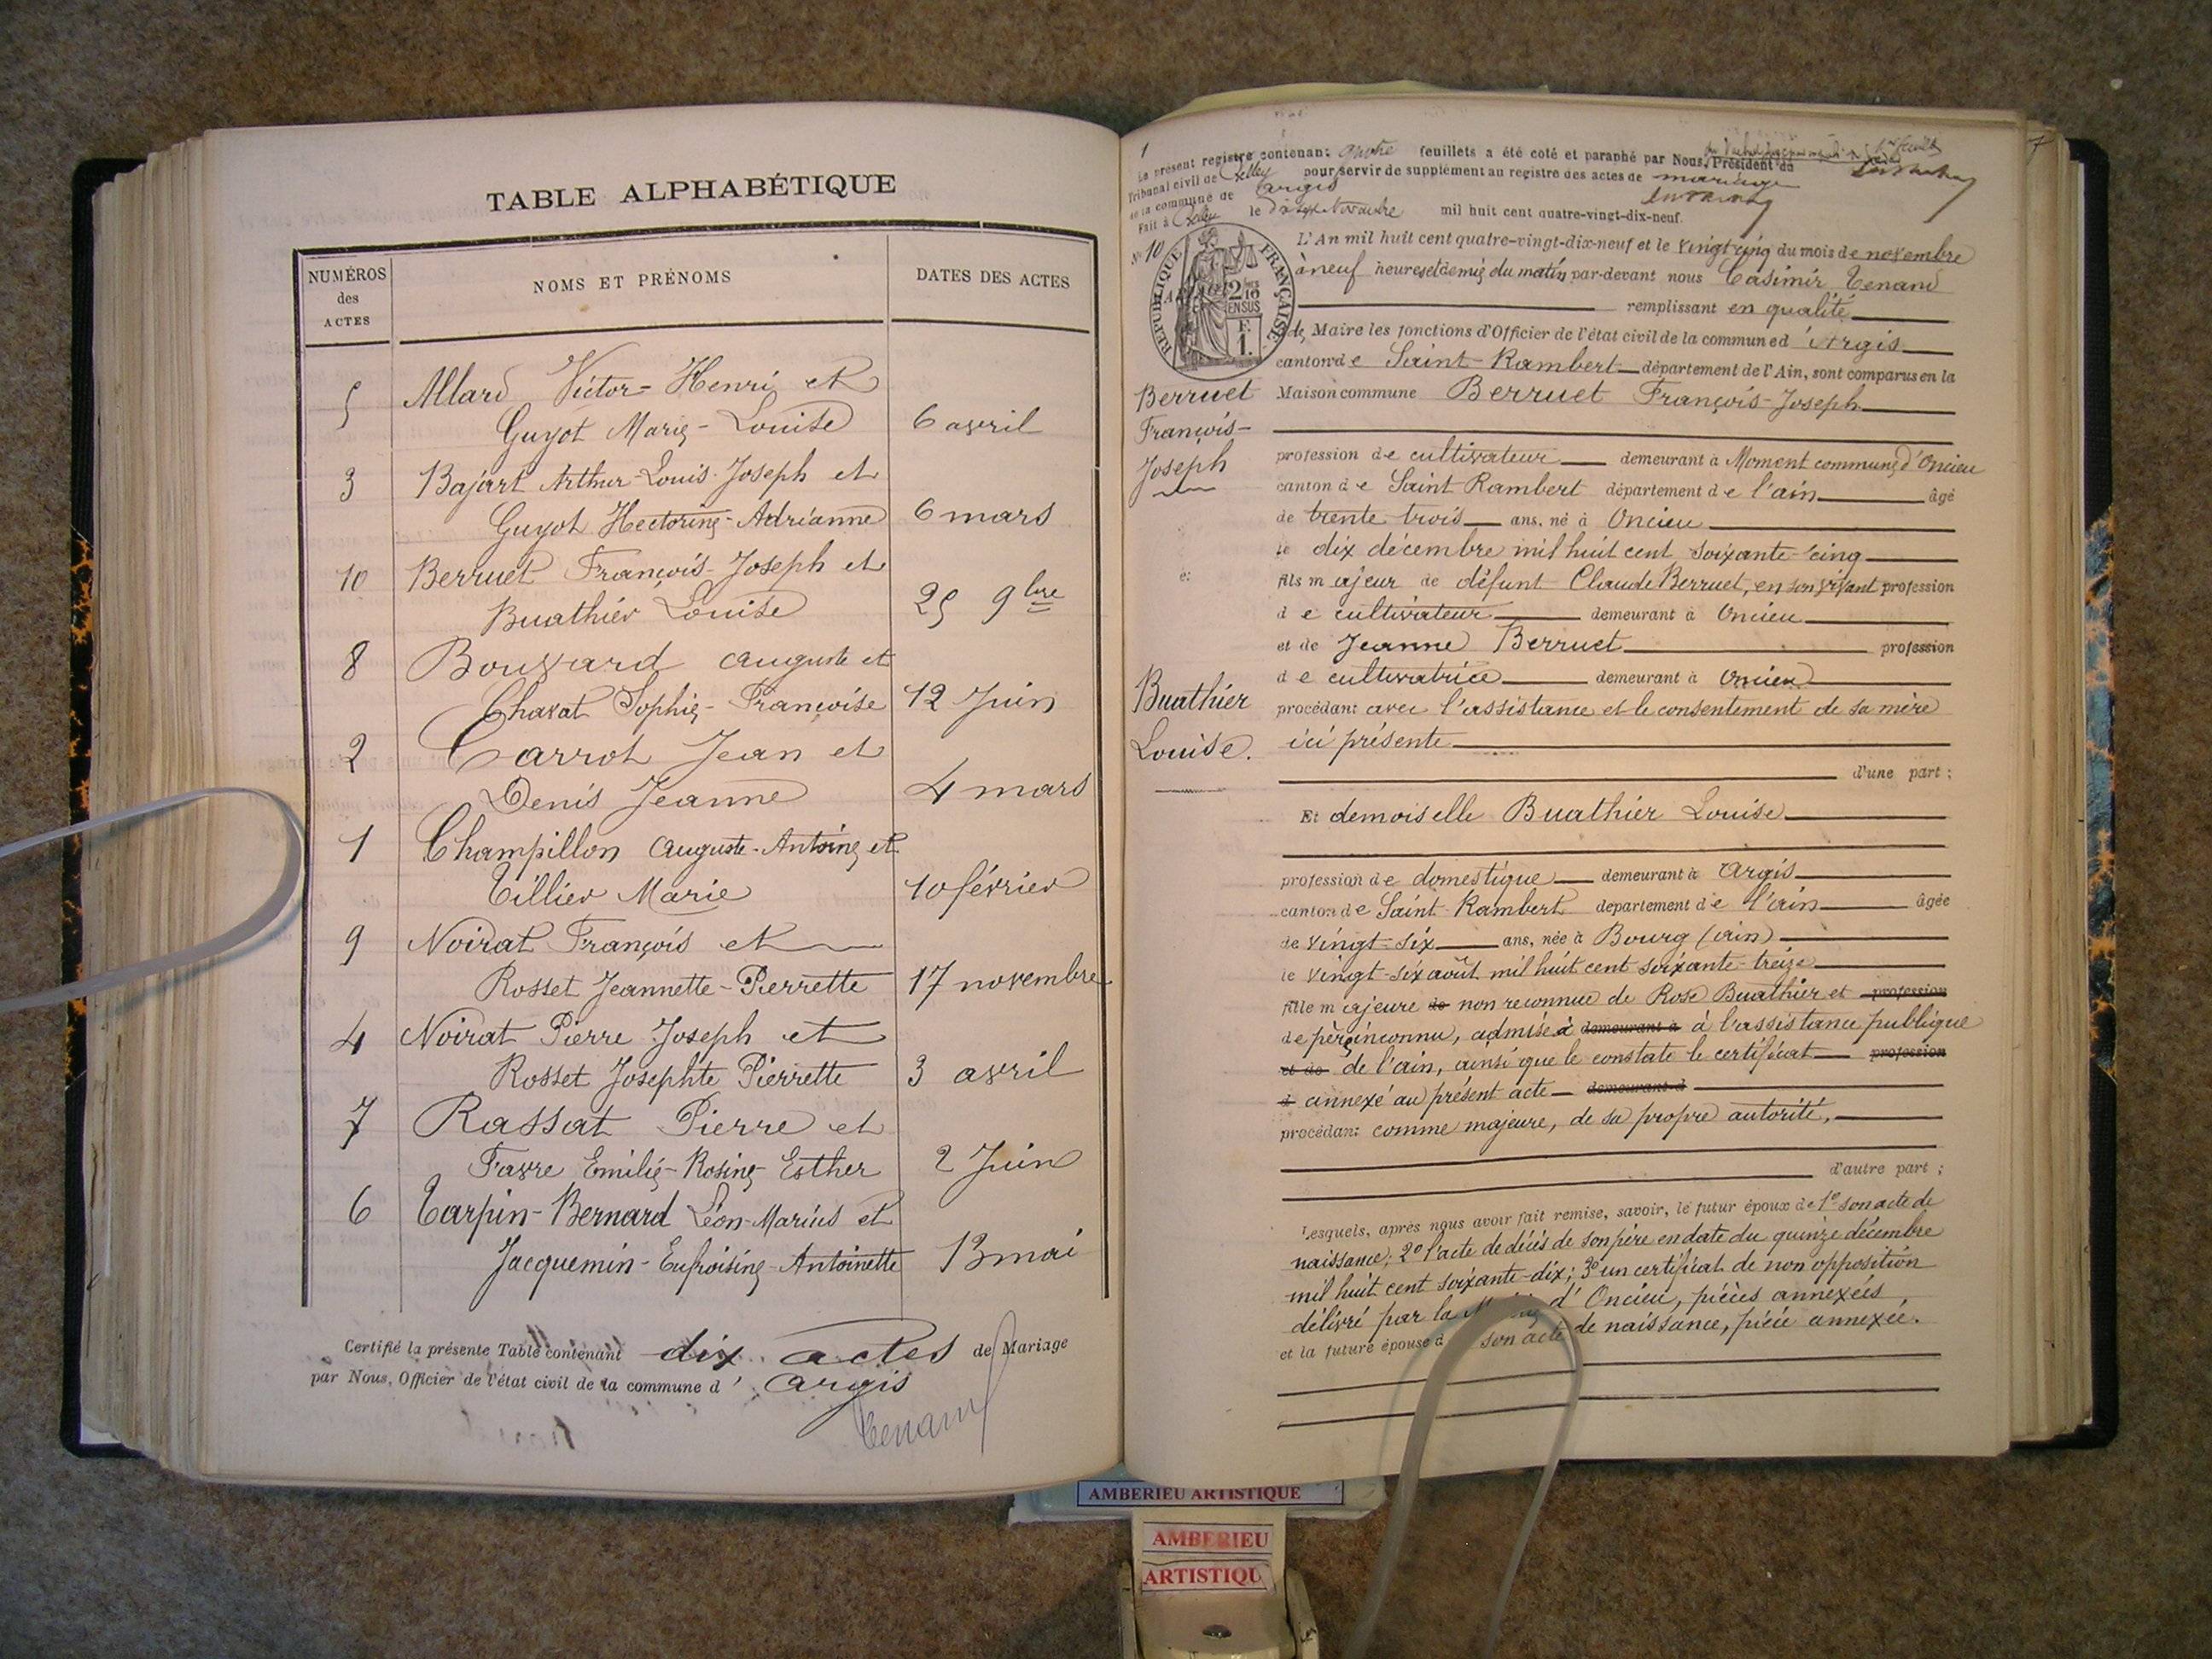 TABLE ALPHABÉTIQUE
NUMÉROS des ACTES
NOMS ET PRÉNOMS
DATES DES ACTES
5 Allard Victor-Henri et
Guyot Marie-Louise 6 avril
3 Bajart Arthur-Louis-Joseph et
Guyot Hectorine-Adrianne 6 mars
10 Berruet François-Joseph et
Buathier Louise 25 9bre
8 Bouvard Auguste et
Chavat Sophie-Françoise 12 Juin
2 Carrot Jean et
Denis Jeanne 4 mars
1 Champillon Auguste-Antoine et
Tillier Marie 10 février
9 Noirat François et
Rosset Jeannette-Pierrette 17 novembre
4 Noirat Pierre Joseph et
Rosset Josephte Pierrette 3 avril
7 Rassat Pierre et
Favre Emilie-Rosine-Esther 2 Juin
6 Tarpin-Bernard Léon-Marius et
Jacquemin-Eufroisine-Antoinette 13 mai
Certifié la présente Table contenant dix actes de Mariage
par Nous, Officier de l'état civil de la commune d'Argis
Tenand
1
7
Le présent registre contenant quatre feuillets a été coté et paraphé par Nous, Président du
Tribunal civil de Belley pour servir de supplément au registre des actes de mariage
de la commune de Argis
Fait à Belley le dix sept Novembre mil huit cent quatre-vingt-dix-neuf.
N° 10
RÉPUBLIQUE FRANÇAISE
2/10 EN SUS
F. 1.
L'An mil huit cent quatre-vingt-dix-neuf et le vingt cinq du mois de novembre
à neuf heures et demie du matin par-devant nous Casimir Tenand
remplissant en qualité
de Maire les fonctions d'Officier de l'état civil de la commune d'Argis
canton de Saint-Rambert département de l'Ain, sont comparus en la
Berruet
François-
Joseph
Maison commune Berruet François-Joseph
profession de cultivateur demeurant à Moment commune d'Oncieu
canton de Saint Rambert département de l'ain âgé
de trente trois ans, né à Oncieu
le dix décembre mil huit cent soixante-cinq
fils majeur de défunt Claude Berruet, en son vivant profession
de cultivateur demeurant à Oncieu
et de Jeanne Berruet profession
de cultivatrice demeurant à Oncieu
Buathier
Louise.
procédant avec l'assistance et le consentement de sa mère
ici présente
d'une part ;
Et demoiselle Buathier Louise
profession de domestique demeurant à Argis
canton de Saint-Rambert département de l'ain âgée
de vingt-six ans, née à Bourg (Ain)
le vingt-six août mil huit cent soixante-treize
fille majeure de non reconnue de Rose Buathier et profession
de père inconnu, admise à demeurant à à l'assistance publique
et de de l'ain, ainsi que le constate le certificat profession
d annexé au présent acte demeurant à
procédant comme majeure, de sa propre autorité,
d'autre part ;
Lesquels, après nous avoir fait remise, savoir, le futur époux de 1° son acte de
naissance; 2° l'acte de décès de son père en date du quinze décembre
mil huit cent soixante-dix; 3° un certificat de non opposition
délivré par la d'Oncieu, pièces annexées,
et la future épouse d son acte de naissance, pièce annexée.
AMBERIEU ARTISTIQUE
AMBERIEU
ARTISTIQU